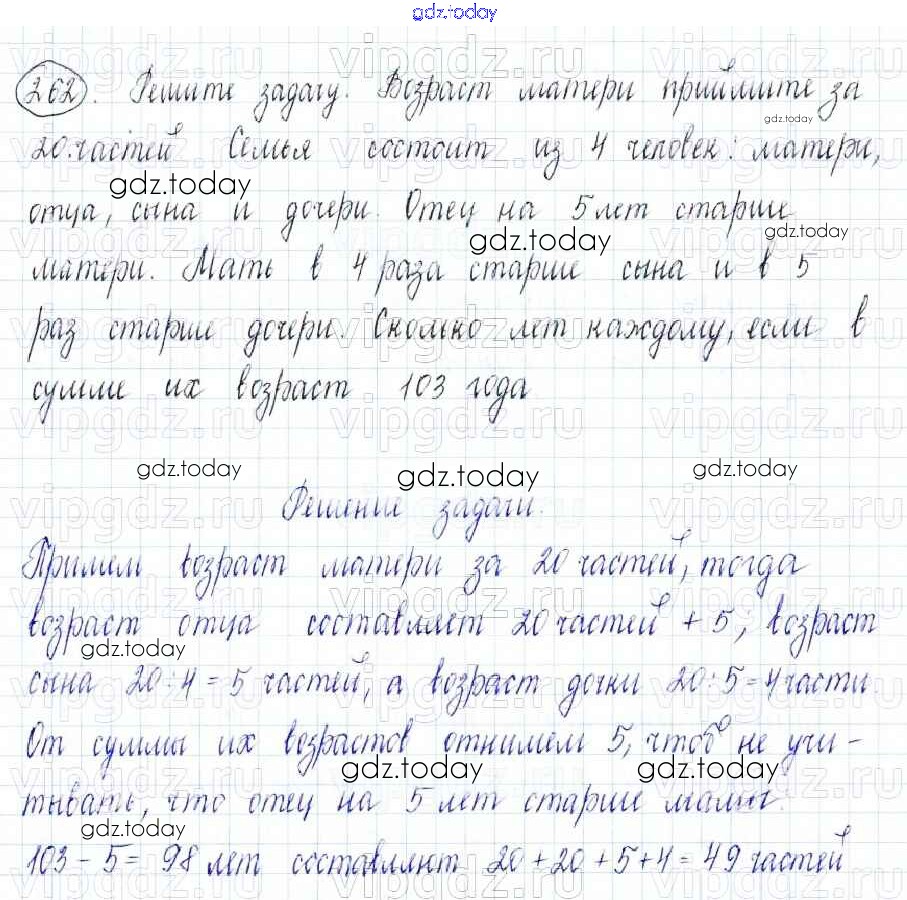 gdz.today
262. Решите задачу. Возраст матери приймите за
gdz.today
20 частей Семья состоит из 4 человек: матери,
gdz.today
отца, сына и дочери. Отец на 5 лет старше
gdz.today
gdz.today
матери. Мать в 4 раза старше сына и в 5
раз старше дочери. Сколько лет каждому, если в
сумме их возраст 103 года
gdz.today
gdz.today
gdz.today
Решение задачи.
Примем возраст матери за 20 частей, тогда
возраст отца составляет 20 частей + 5; возраст
gdz.today
сына 20:4=5 частей, а возраст дочки 20:5=4 части.
От суммы их возрастов отнимем 5, чтоб не учи-
gdz.today
gdz.today
тывать, что отец на 5 лет старше мамы.
gdz.today
103-5= 98 лет составляют 20+20+5+4=49 частей
gdz.today
vipgdz.ru